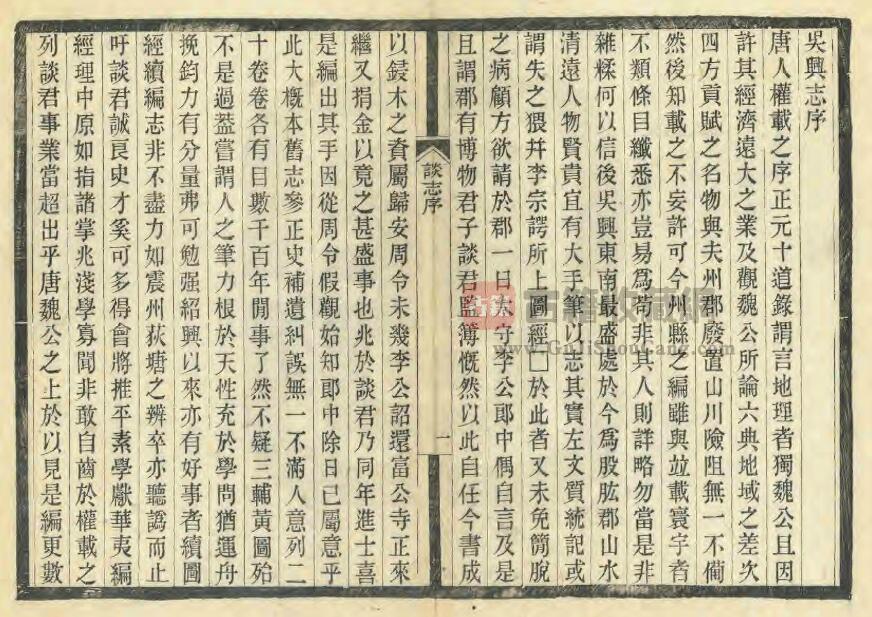 吳興志序
唐人權載之序正元十道錄謂言地理者獨魏公且因
許其經濟遠大之業及觀魏公所論六典地域之差次
四方貢賦之名物與夫州郡廢置山川險阻無一不備
然後知載之不妄許可今州縣之編雖與並載寰宇者
不類條目纖悉亦豈易爲苟非其人則詳略勿當是非
雜糅何以信後吳興東南最盛處於今爲股肱郡山水
清遠人物賢貴宜有大手筆以志其實左文質統記或
謂失之猥并李宗諤所上圖經□於此者又未免簡脫
之病顧方欲請於郡一日太守李公郎中偶自言及是
且謂郡有博物君子談君監簿慨然以此自任今書成
談志序
一
以鋟木之資屬歸安周令未幾李公詔還富公寺正來
繼又捐金以竟之甚盛事也兆於談君乃同年進士喜
是編出其手因從周令假觀始知郎中除日已屬意乎
此大槪本舊志參正史補遺糾誤無一不滿人意列二
十卷卷各有目數千百年閒事了然不疑三輔黃圖殆
不是過葢嘗謂人之筆力根於天性充於學問猶運舟
挽鈞力有分量弗可勉强紹興以來亦有好事者續圖
經續編志非不盡力如震州荻塘之辨卒亦聽譌而止
吁談君誠良史才奚可多得會將推平素學獻華夷編
經理中原如指諸掌兆淺學寡聞非敢自齒於權載之
列談君事業當超出乎唐魏公之上於以見是編更數
古籍收藏網
www.GuJiShouCang.com